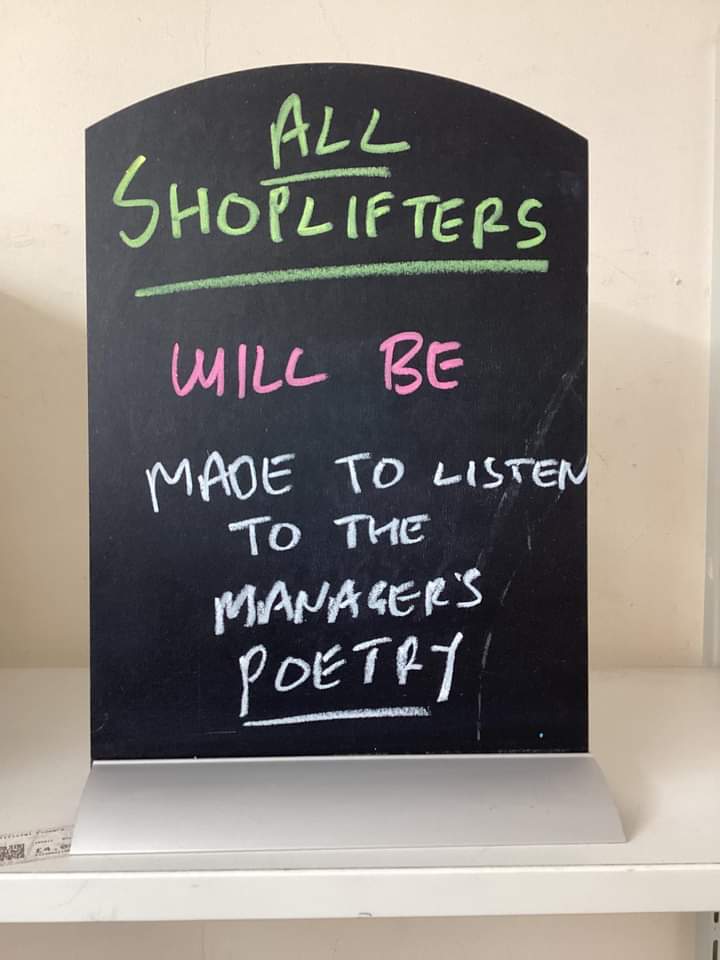 ALL
SHOPLIFTERS
WILL BE
MADE TO LISTEN
TO THE
MANAGER'S
POETRY